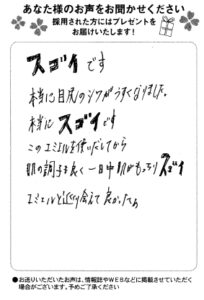 あなた様のお声をお聞かせください
採用された方にはプレゼントを
お届けいたします!
スゴイです
本当に目尻のシワがうすくなりました。
本当にスゴイです
このエミエルを使いだしてから
肌の調子も良く一日中肌がもっちりスゴイ
エミエルと巡り会えて良かったぁ
●お送りいただいたお声は、情報誌やWEBなどに掲載させていただく
場合がございます。予めご了承ください